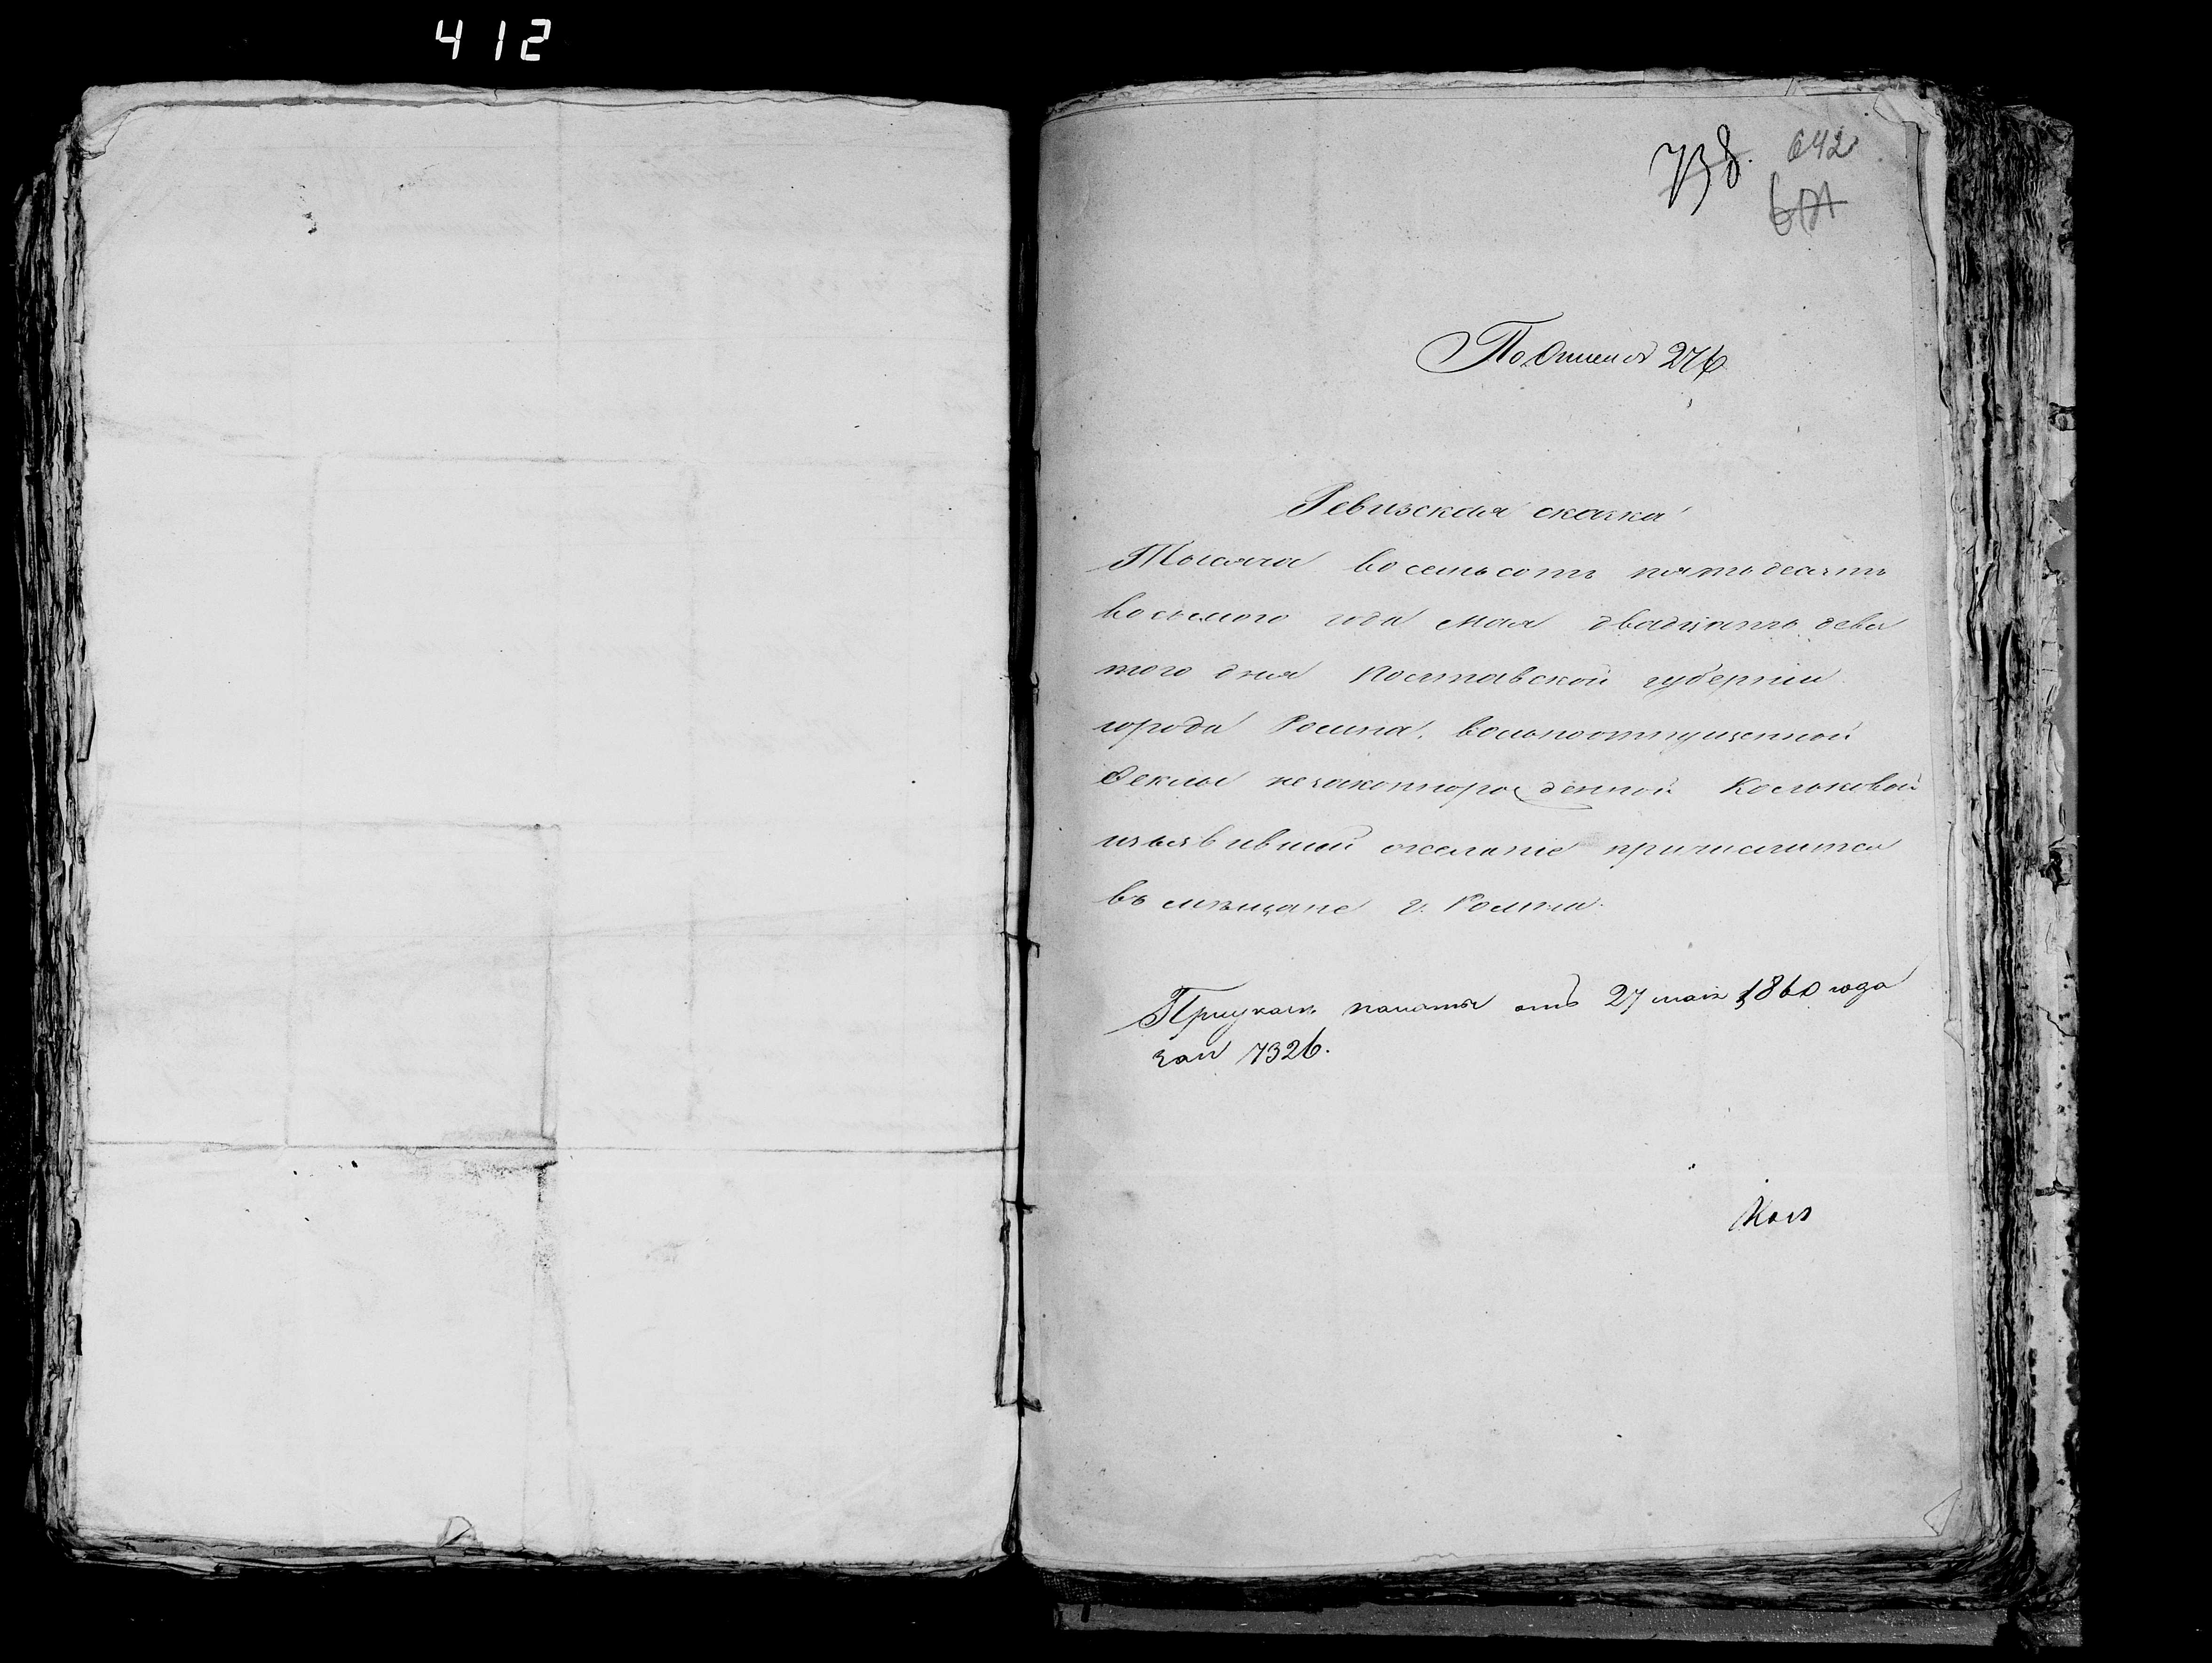 412
738.
642
По Описи 276
Ревизская сказка
Тысяча восемьсотъ пятьдесятъ
восьмого года мая двадцать девя
того дня Полтавской губерніи
города Ромна, вольноотпущенной
Феклы незаконнорожденной Кольковой
изъявившей желаніе причислится
въ мѣщане г. Ромна.
При указѣ палаты отъ 27 мая 1860 года
за № 7326.